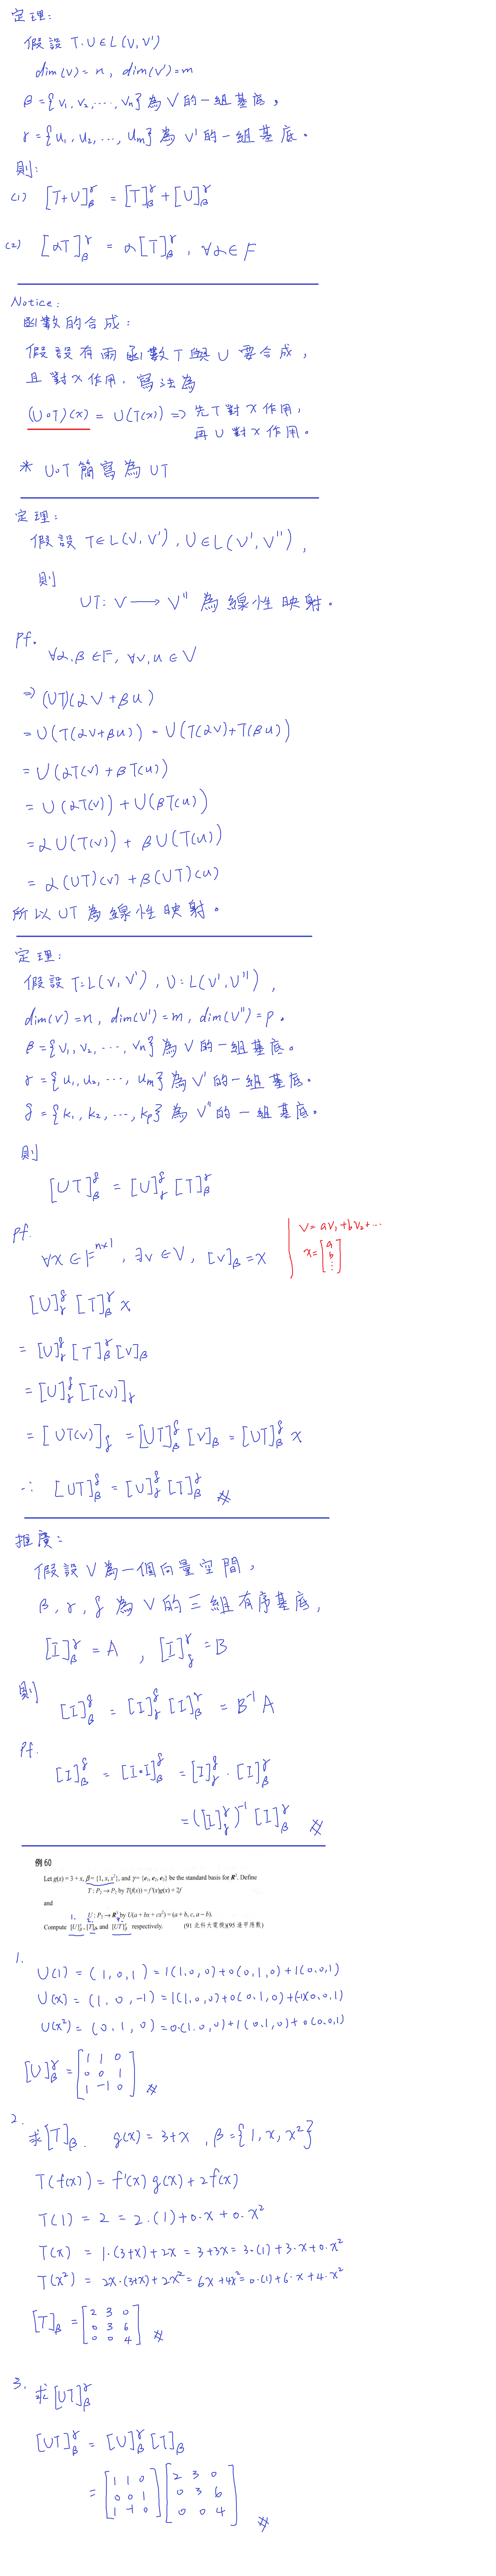 定理:
假設 T.U ∈ L(V, V')
dim(V) = n, dim(V') = m
β = {v₁, v₂, ..., vₙ} 為 V 的一組基底,
γ = {u₁, u₂, ..., uₘ} 為 V' 的一組基底。
則:
(1) [T+U]_β^γ = [T]_β^γ + [U]_β^γ
(2) [αT]_β^γ = α[T]_β^γ, ∀α∈F
Notice:
函數的合成:
假設有兩函數 T 與 U 要合成,
且對 x 作用, 寫法為
(U∘T)(x) = U(T(x)) => 先 T 對 x 作用,
再 U 對 x 作用。
* U∘T 簡寫為 UT
定理:
假設 T∈L(V, V'), U∈L(V', V''),
則
UT: V → V'' 為線性映射。
pf.
∀α,β∈F, ∀v,u∈V
=> (UT)(αv+βu)
= U(T(αv+βu)) = U(T(αv)+T(βu))
= U(αT(v)+βT(u))
= U(αT(v)) + U(βT(u))
= αU(T(v)) + βU(T(u))
= α(UT)(v) + β(UT)(u)
所以 UT 為線性映射。
定理:
假設 T=L(V, V'), U=L(V', V''),
dim(V)=n, dim(V')=m, dim(V'')=p。
β = {v₁, v₂, ..., vₙ} 為 V 的一組基底。
γ = {u₁, u₂, ..., uₘ} 為 V' 的一組基底。
δ = {k₁, k₂, ..., kₚ} 為 V'' 的一組基底。
則
[UT]_β^δ = [U]_γ^δ [T]_β^γ
pf.
∀x∈F^{n×1}, ∃v∈V, [v]_β = x
v = av₁+bv₂+...
x = [a b ⋮]
[U]_γ^δ [T]_β^γ x
= [U]_γ^δ [T]_β^γ [v]_β
= [U]_γ^δ [T(v)]_γ
= [UT(v)]_δ = [UT]_β^δ [v]_β = [UT]_β^δ x
∴ [UT]_β^δ = [U]_γ^δ [T]_β^γ #
推廣:
假設 V 為一個向量空間,
β, γ, δ 為 V 的三組有序基底,
[I]_β^γ = A, [I]_δ^γ = B
則 [I]_β^δ = [I]_γ^δ [I]_β^γ = B⁻¹A
pf.
[I]_β^δ = [I∘I]_β^δ = [I]_γ^δ · [I]_β^γ
= ([I]_δ^γ)⁻¹ [I]_β^γ #
例 60
Let g(x) = 3 + x, β = {1, x, x²}, and γ = {e₁, e₂, e₃} be the standard basis for R³. Define
T : P₂ → P₂ by T(f(x)) = f'(x)g(x) + 2f
and
U : P₂ → R³ by U(a + bx + cx²) = (a + b, c, a − b).
1. 2. 3.
Compute [U]_β^γ, [T]_β and [UT]_β^γ respectively. (91 北科大電機)(95 逢甲應數)
1.
U(1) = (1, 0, 1) = 1(1,0,0)+0(0,1,0)+1(0,0,1)
U(x) = (1, 0, -1) = 1(1,0,0)+0(0,1,0)+(-1)(0,0,1)
U(x²) = (0, 1, 0) = 0·(1,0,0)+1(0,1,0)+0(0,0,1)
[U]_β^γ = [1 1 0
0 0 1
1 -1 0] #
2.
求 [T]_β. g(x) = 3+x, β = {1, x, x²}
T(f(x)) = f'(x)g(x) + 2f(x)
T(1) = 2 = 2·(1)+0·x+0·x²
T(x) = 1·(3+x)+2x = 3+3x = 3·(1)+3·x+0·x²
T(x²) = 2x·(3+x)+2x² = 6x+4x² = 0·(1)+6·x+4·x²
[T]_β = [2 3 0
0 3 6
0 0 4] #
3.
求 [UT]_β^γ
[UT]_β^γ = [U]_β^γ [T]_β
= [1 1 0] [2 3 0]
[0 0 1] [0 3 6]
[1 -1 0] [0 0 4] #